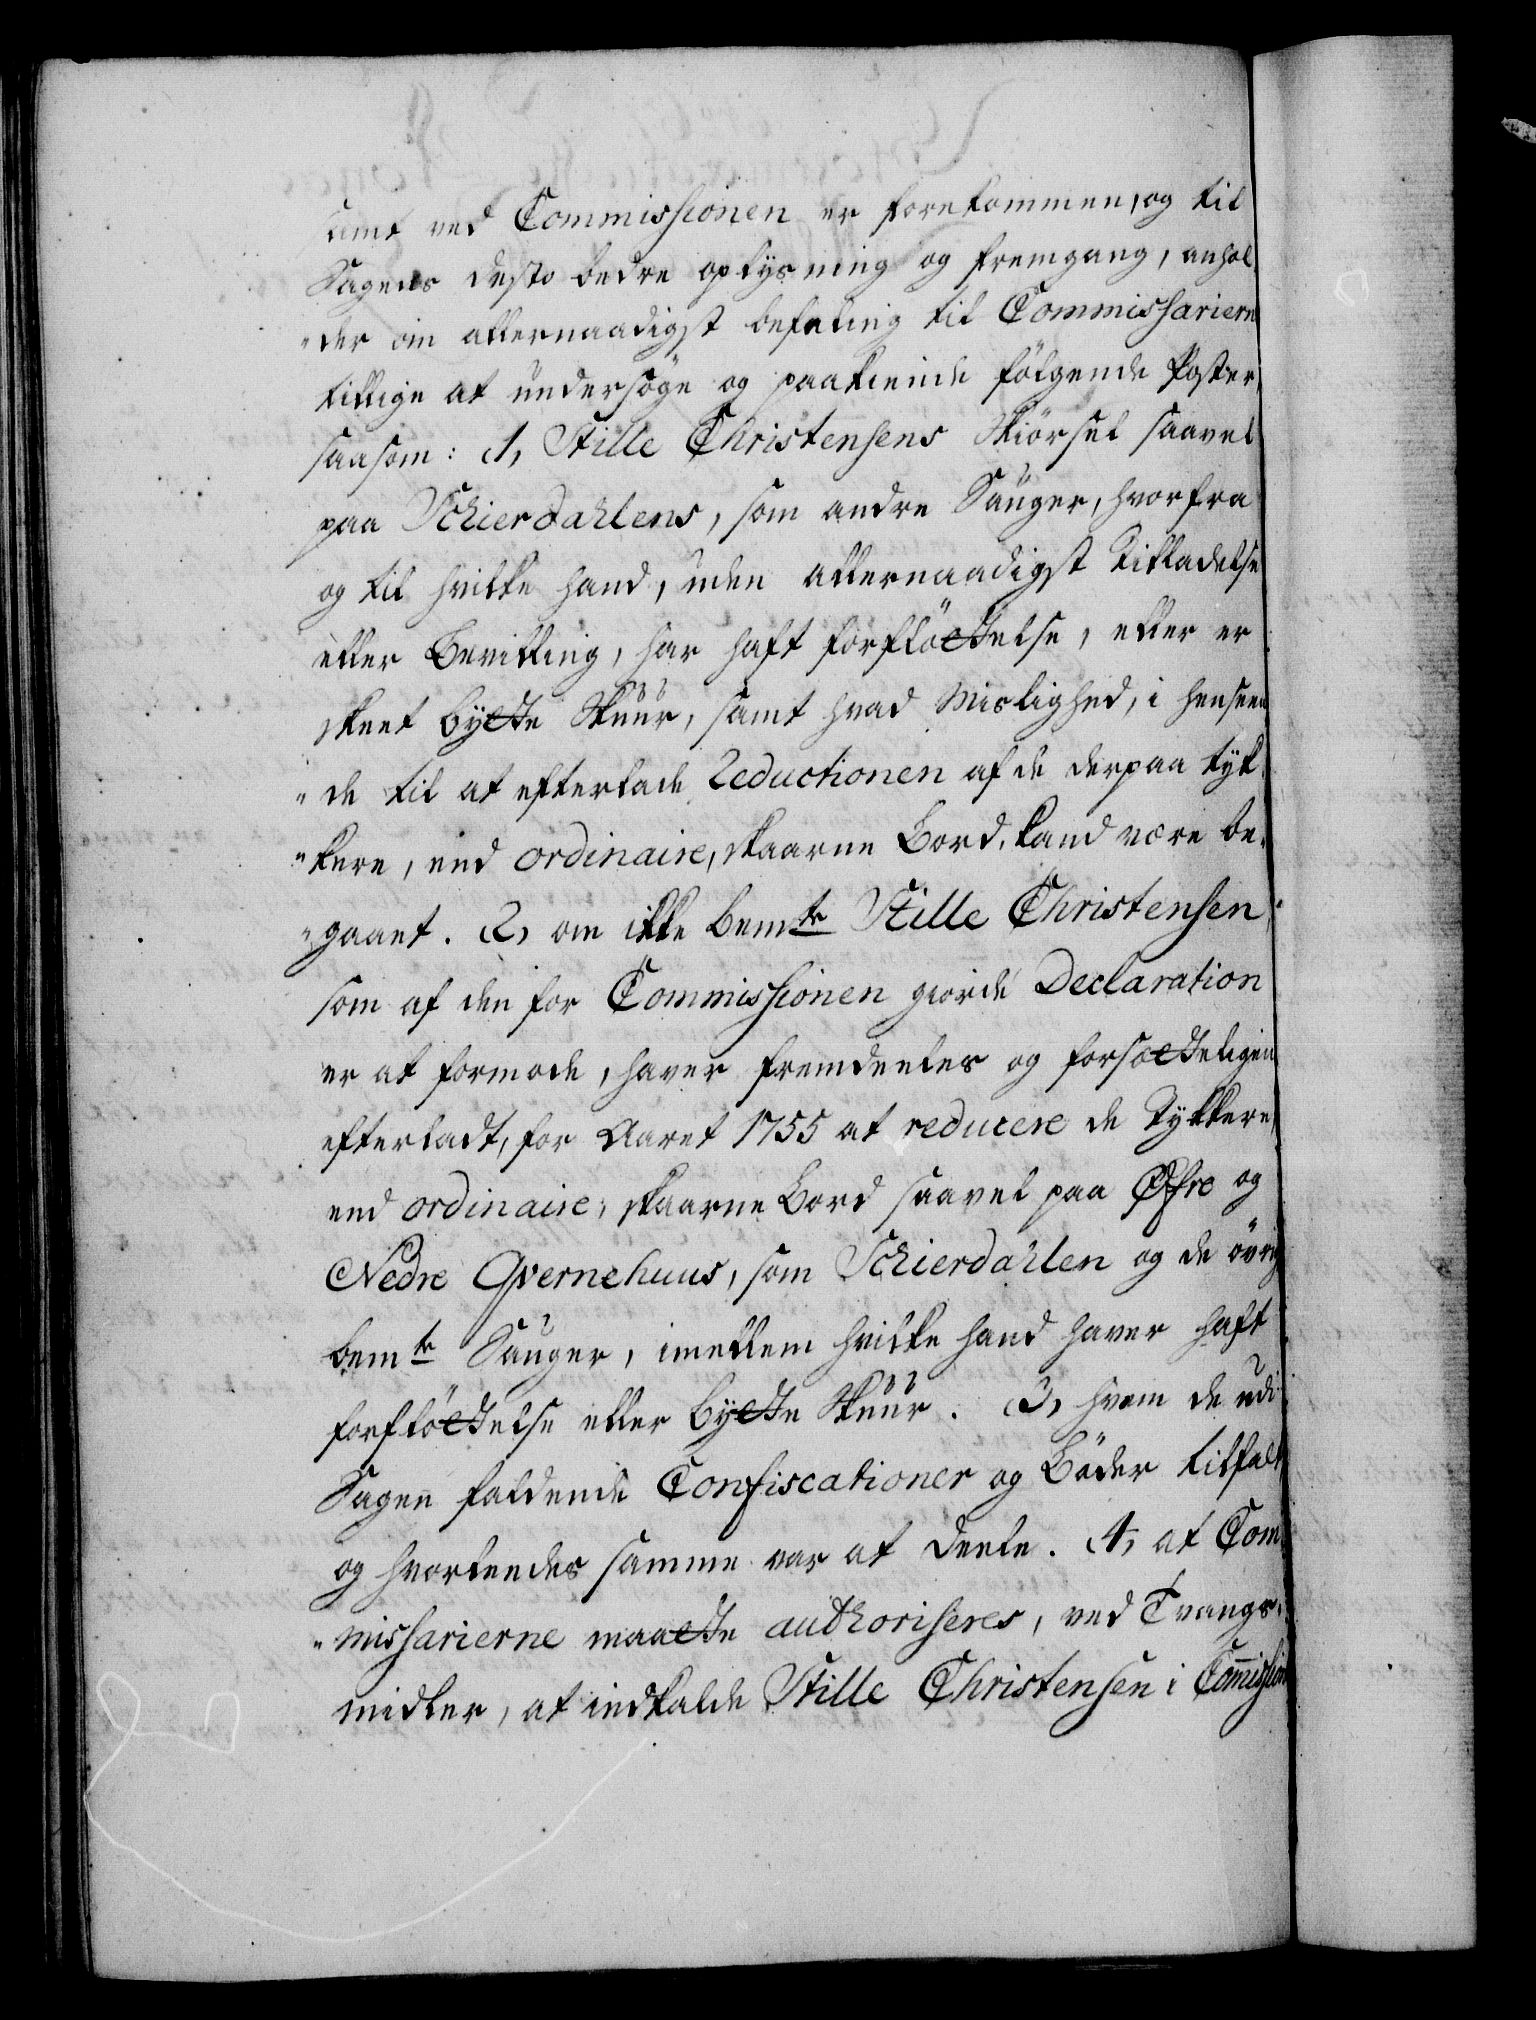 samt ved Commissionen er forekommen, og til
Sagens desto bedre oplysning og fremgang, anhol
"der om allernaadigst befaling til Commissarierne
tillige at undersöge og paakiende fölgende Poster,
saasom: 1, Stille Christensens Skiörsel saavel
paa Schierdahlens, som andre Sauger, hvorfra
og til hvilke hand, uden allernaadigst Tilladelse
eller Bevilling, har haft forflöttelse, eller er
skeet bytte Skuur, samt hvad Mislighed, i henseen
"de til at efterlade Reductionen af de derpaa tyk
"kere, end ordinaire, skaarne Bord, kand være be,
"gaaet. 2, om ikke bemte Stille Christensen,
som af den for Commissionen giorde Declaration
er at formode, haver fremdeeles og forsætteligen
efterladt, for Aaret 1755 at reducere de Tykkere
end ordinaire, skaarne Bord saavel paa Øfre og
Nedre Qvernehuus, som Schierdahlen og de övrig
bemte Sauger, imellem hvilke hand haver haft
forflöttelse eller bytte Skuur. 3, hvem de udi
Sagen faldende Confiscationer og Böder tilfalt
og hvorledes samme var at deele. 4, at Com
"missarierne maatte authoriseres, ved Tvangs,
midler, at indkalde Stille Christensen i Commission